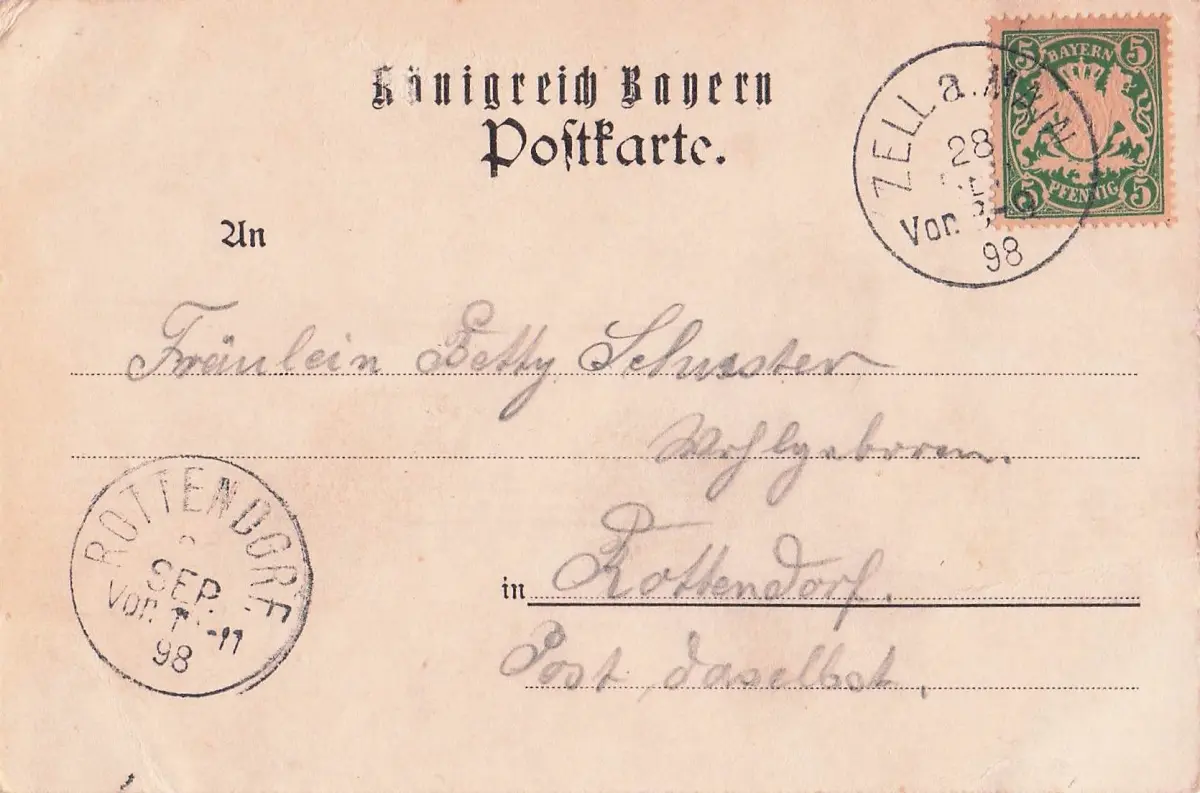 Königreich Bayern
Postkarte.
5 BAYERN 5
5 PFENNIG 5
ZELL a. MAIN
28
Vor.
98
An
Fräulein Betty Schuster
Wohlgeboren.
in Rottendorf.
Post daselbst.
ROTTENDORF
SEP.
Vor. 7-11
98